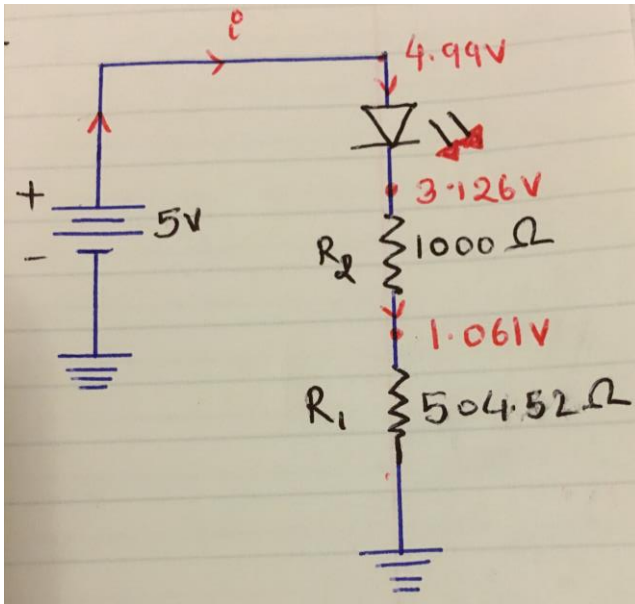 i
4.99V
+
3.126V
5V
-
R2 1000 Ω
1.061V
R1 504.52 Ω